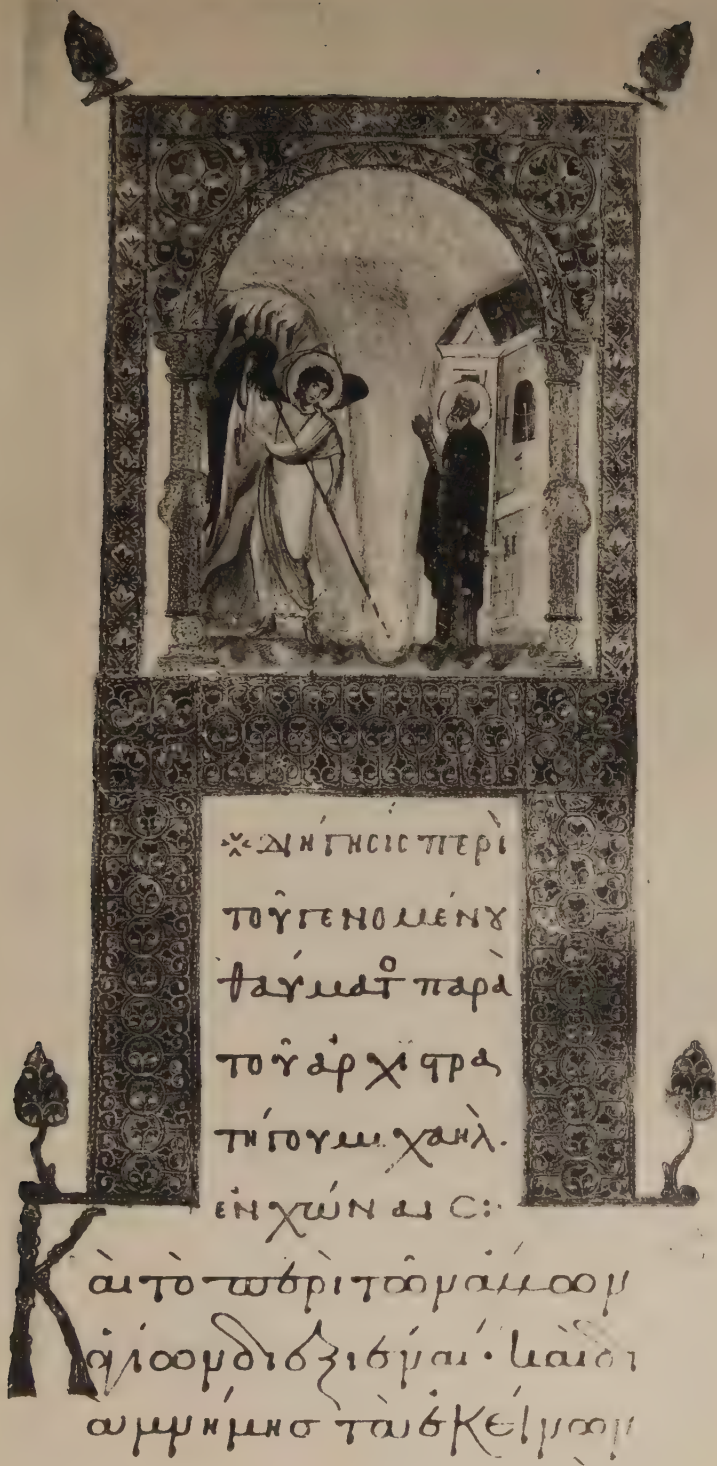 ※ Διήγησις περὶ
τοῦ γενομένȣ
θαύματο παρὰ
τοῦ ἀρχιϛρα
τήγου μιχαὴλ.
ἐν χώναις:
Καὶ τὸ περὶ τῶν ἄλλων
ἁγίων διεξιέναι· καὶ δι
ὰ μνήμης τὰ ἐκείνων